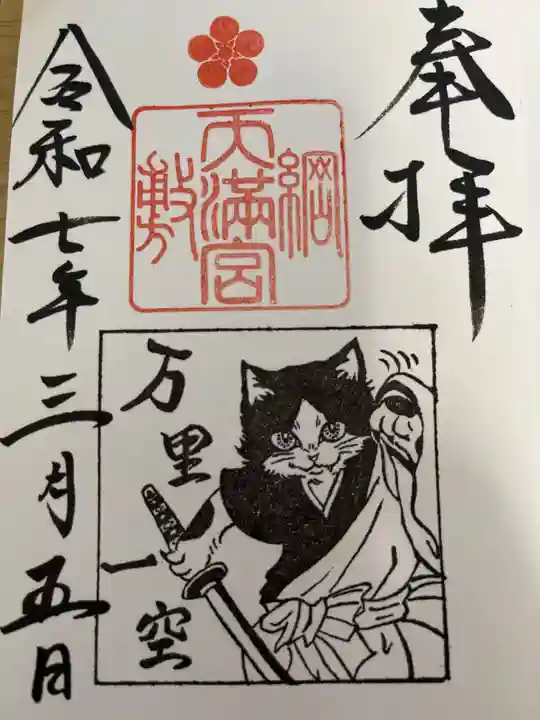 奉拝
綱敷
天満宮
万里一空
令和七年三月五日